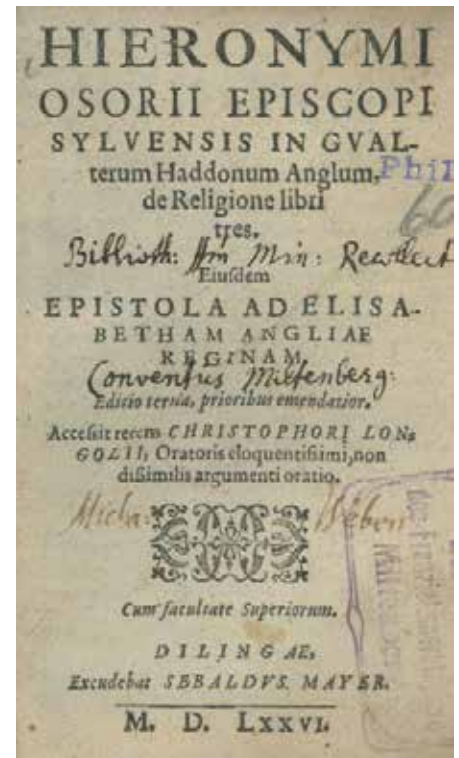 HIERONYMI
OSORII EPISCOPI
SYLVENSIS IN GVAL-
terum Haddonum Anglum,
de Religione libri
tres.
Biblioth: Min: Recollect
Eiusdem
EPISTOLA AD ELISA-
BETHAM ANGLIAE
REGINAM.
Conventus Miltenberg:
Editio tertia, prioribus emendatior.
Accessit recens CHRISTOPHORI LON-
GOLII, Oratoris eloquentissimi, non
dissimilis argumenti oratio.
Cum facultate Superiorum.
DILINGAE,
Excudebat SEBALDVS MAYER.
M. D. LXXVI.